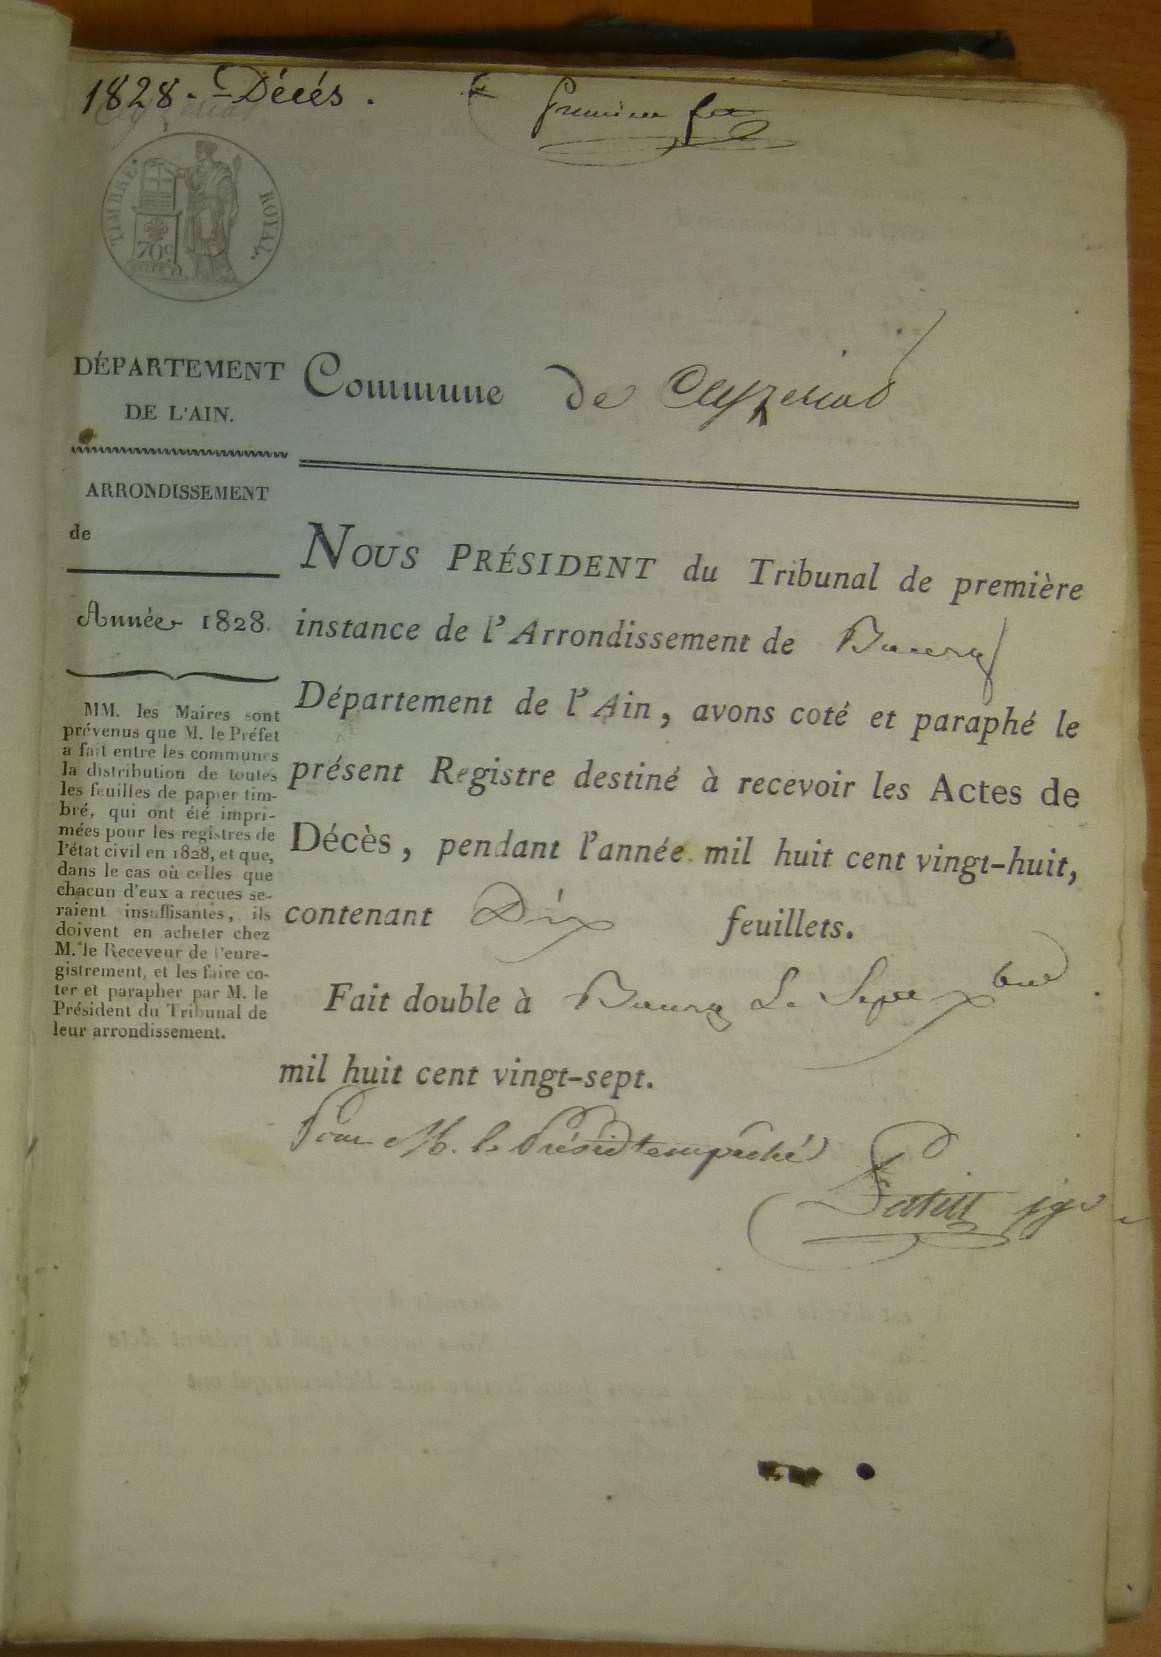 1828. Décés.
premier fet
TIMBRE ROYAL.
70c
DÉPARTEMENT
DE L'AIN.
ARRONDISSEMENT
de
Année 1828.
MM. les Maires sont
prévenus que M. le Préfet
a fait entre les communes
la distribution de toutes
les feuilles de papier tim-
bré, qui ont été impri-
mées pour les registres de
l'état civil en 1828, et que,
dans le cas où celles que
chacun d'eux a reçues se-
raient insuffisantes, ils
doivent en acheter chez
M. le Receveur de l'enre-
gistrement, et les faire co-
ter et parapher par M. le
Président du Tribunal de
leur arrondissement.
Commune de Ceyzeriat
NOUS PRÉSIDENT du Tribunal de première
instance de l'Arrondissement de Bourg
Département de l'Ain, avons coté et paraphé le
présent Registre destiné à recevoir les Actes de
Décès, pendant l'année mil huit cent vingt-huit,
contenant Dix feuillets.
Fait double à Bourg Le Sept xbre
mil huit cent vingt-sept.
Pour M. le Présidt empeché
jge